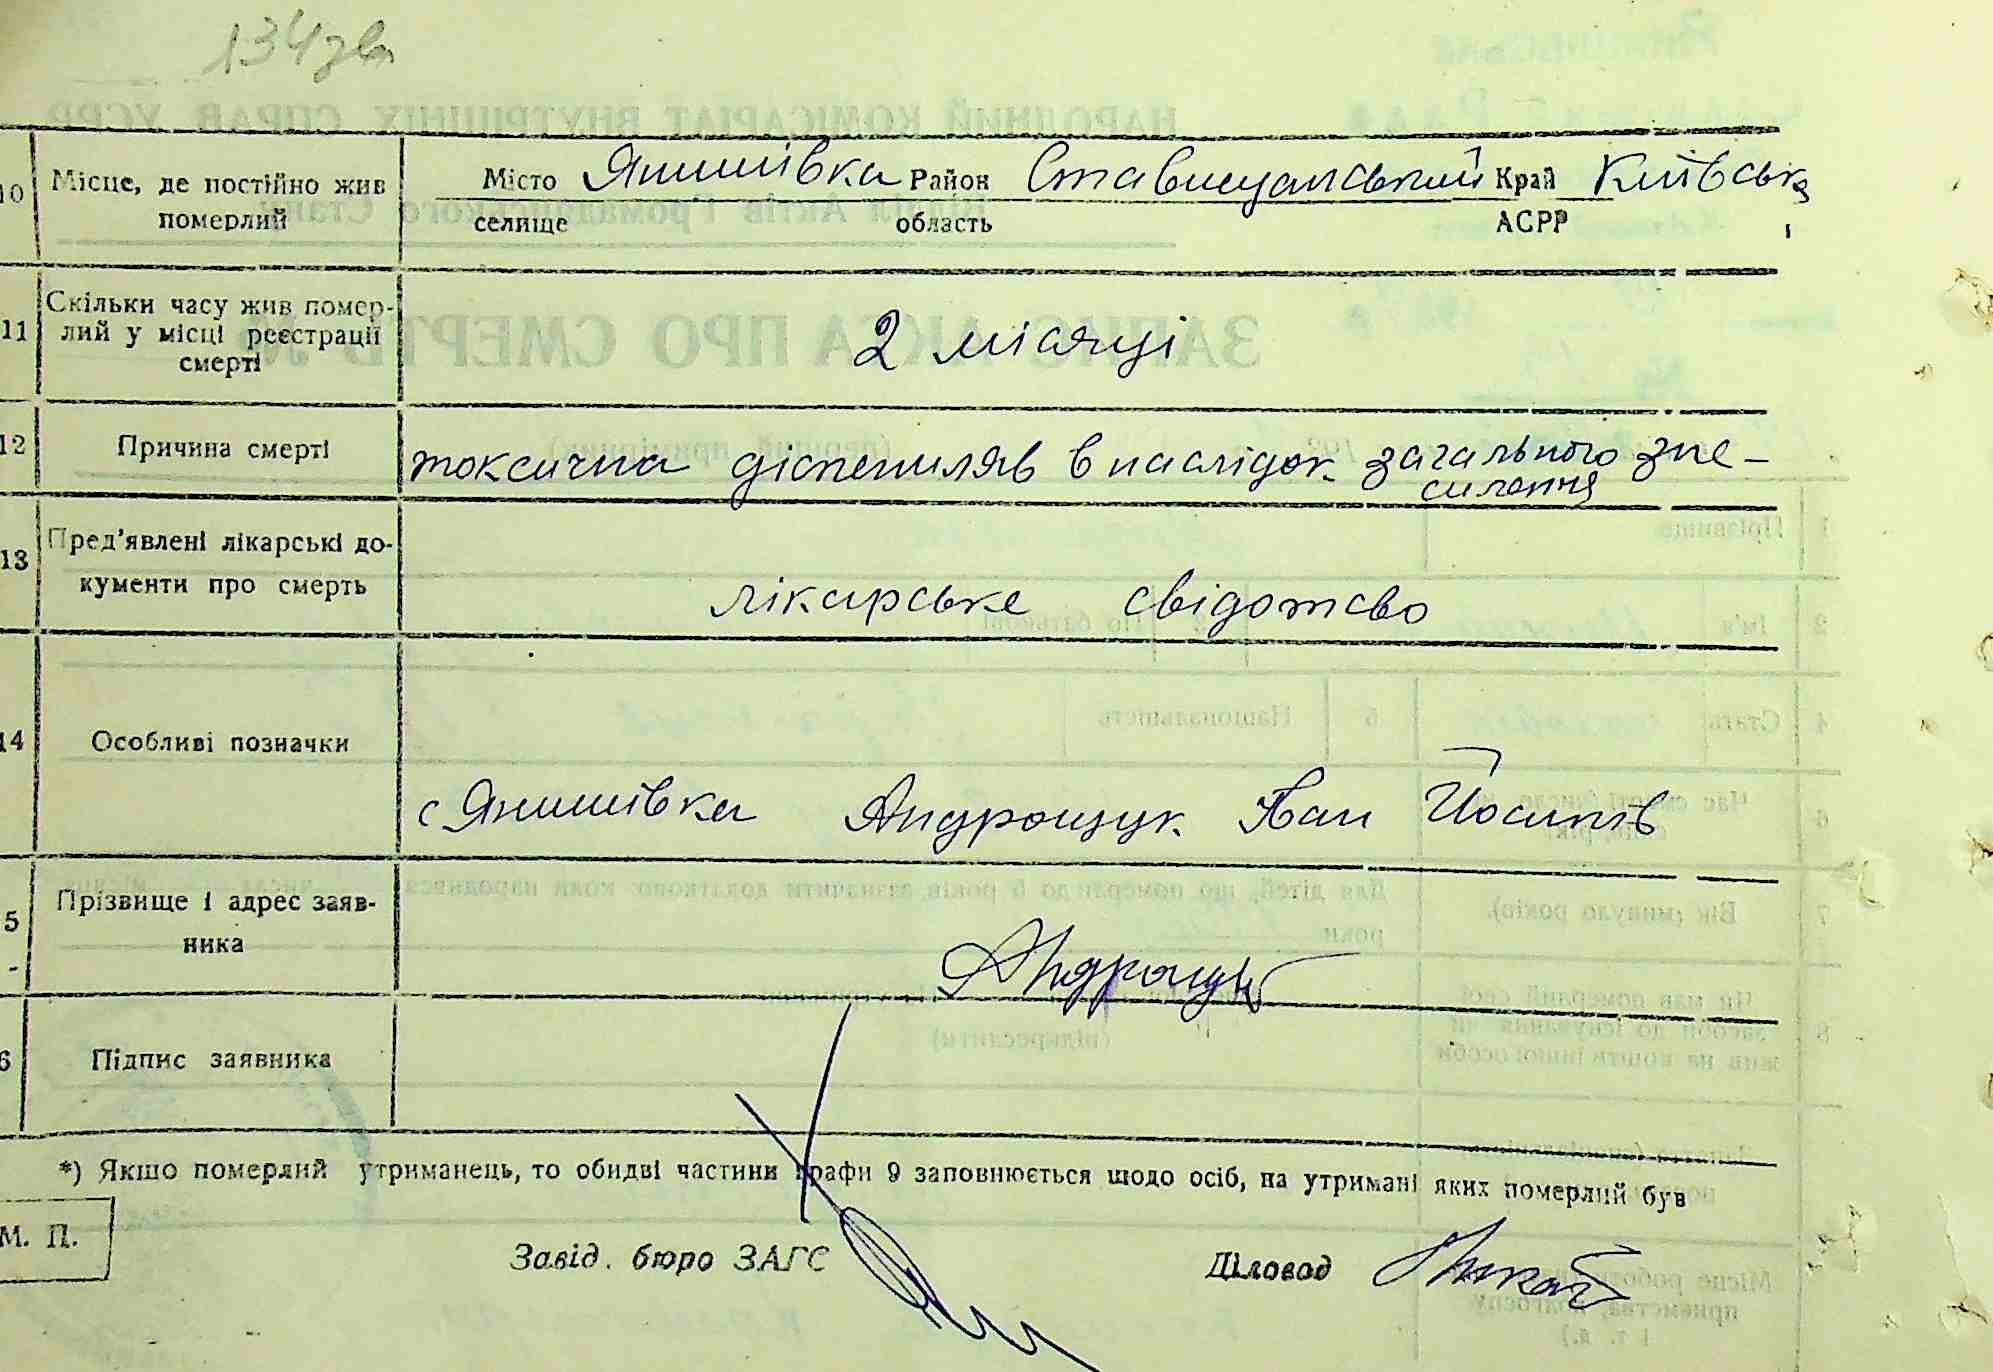 134зв
10 Місце, де постійно жив померлий
Місто Янишівка Район Ставищанський Край Київська
селище область АСРР
11 Скільки часу жив помер-
лий у місці реєстрації
смерті
2 місяці
12 Причина смерті
токсична в наслідок загального зне-
силення
13 Пред'явлені лікарські до-
кументи про смерть
лікарське свідотство
14 Особливі позначки
с Янишівка Андрощук Іван Йосипів
5 Прізвище і адрес заяв-
ника
Андрощук
6 Підпис заявника
*) Якщо померлий утриманець, то обидві частини графи 9 заповнюється щодо осіб, на утримані яких померлий був
М. П.
Завід. бюро ЗАГС Діловод